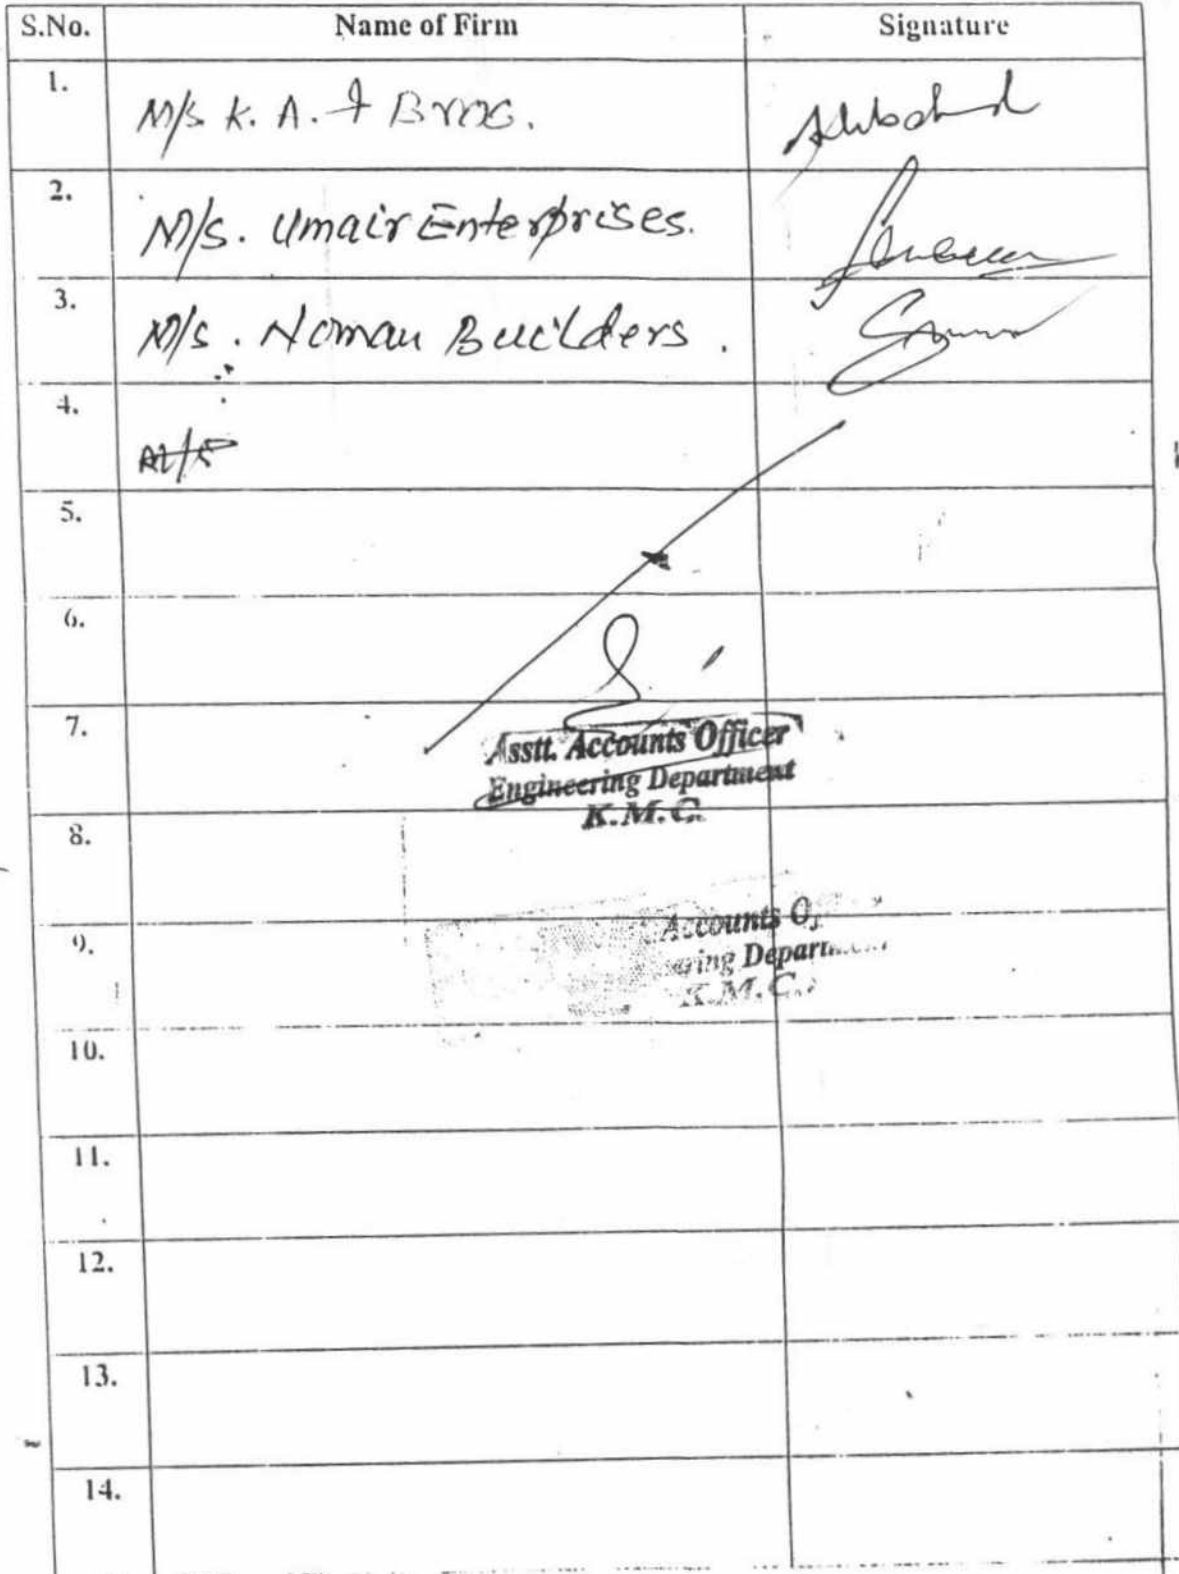 S.No. Name of Firm Signature
1. M/s K. A. & Bros.
2. M/s. Umair Enterprises.
3. M/s. Noman Builders.
4. M/s
5.
6.
7.
Asstt. Accounts Officer
Engineering Department
K.M.C.
8.
9.
Accounts
K.M.C.
10.
11.
12.
13.
14.